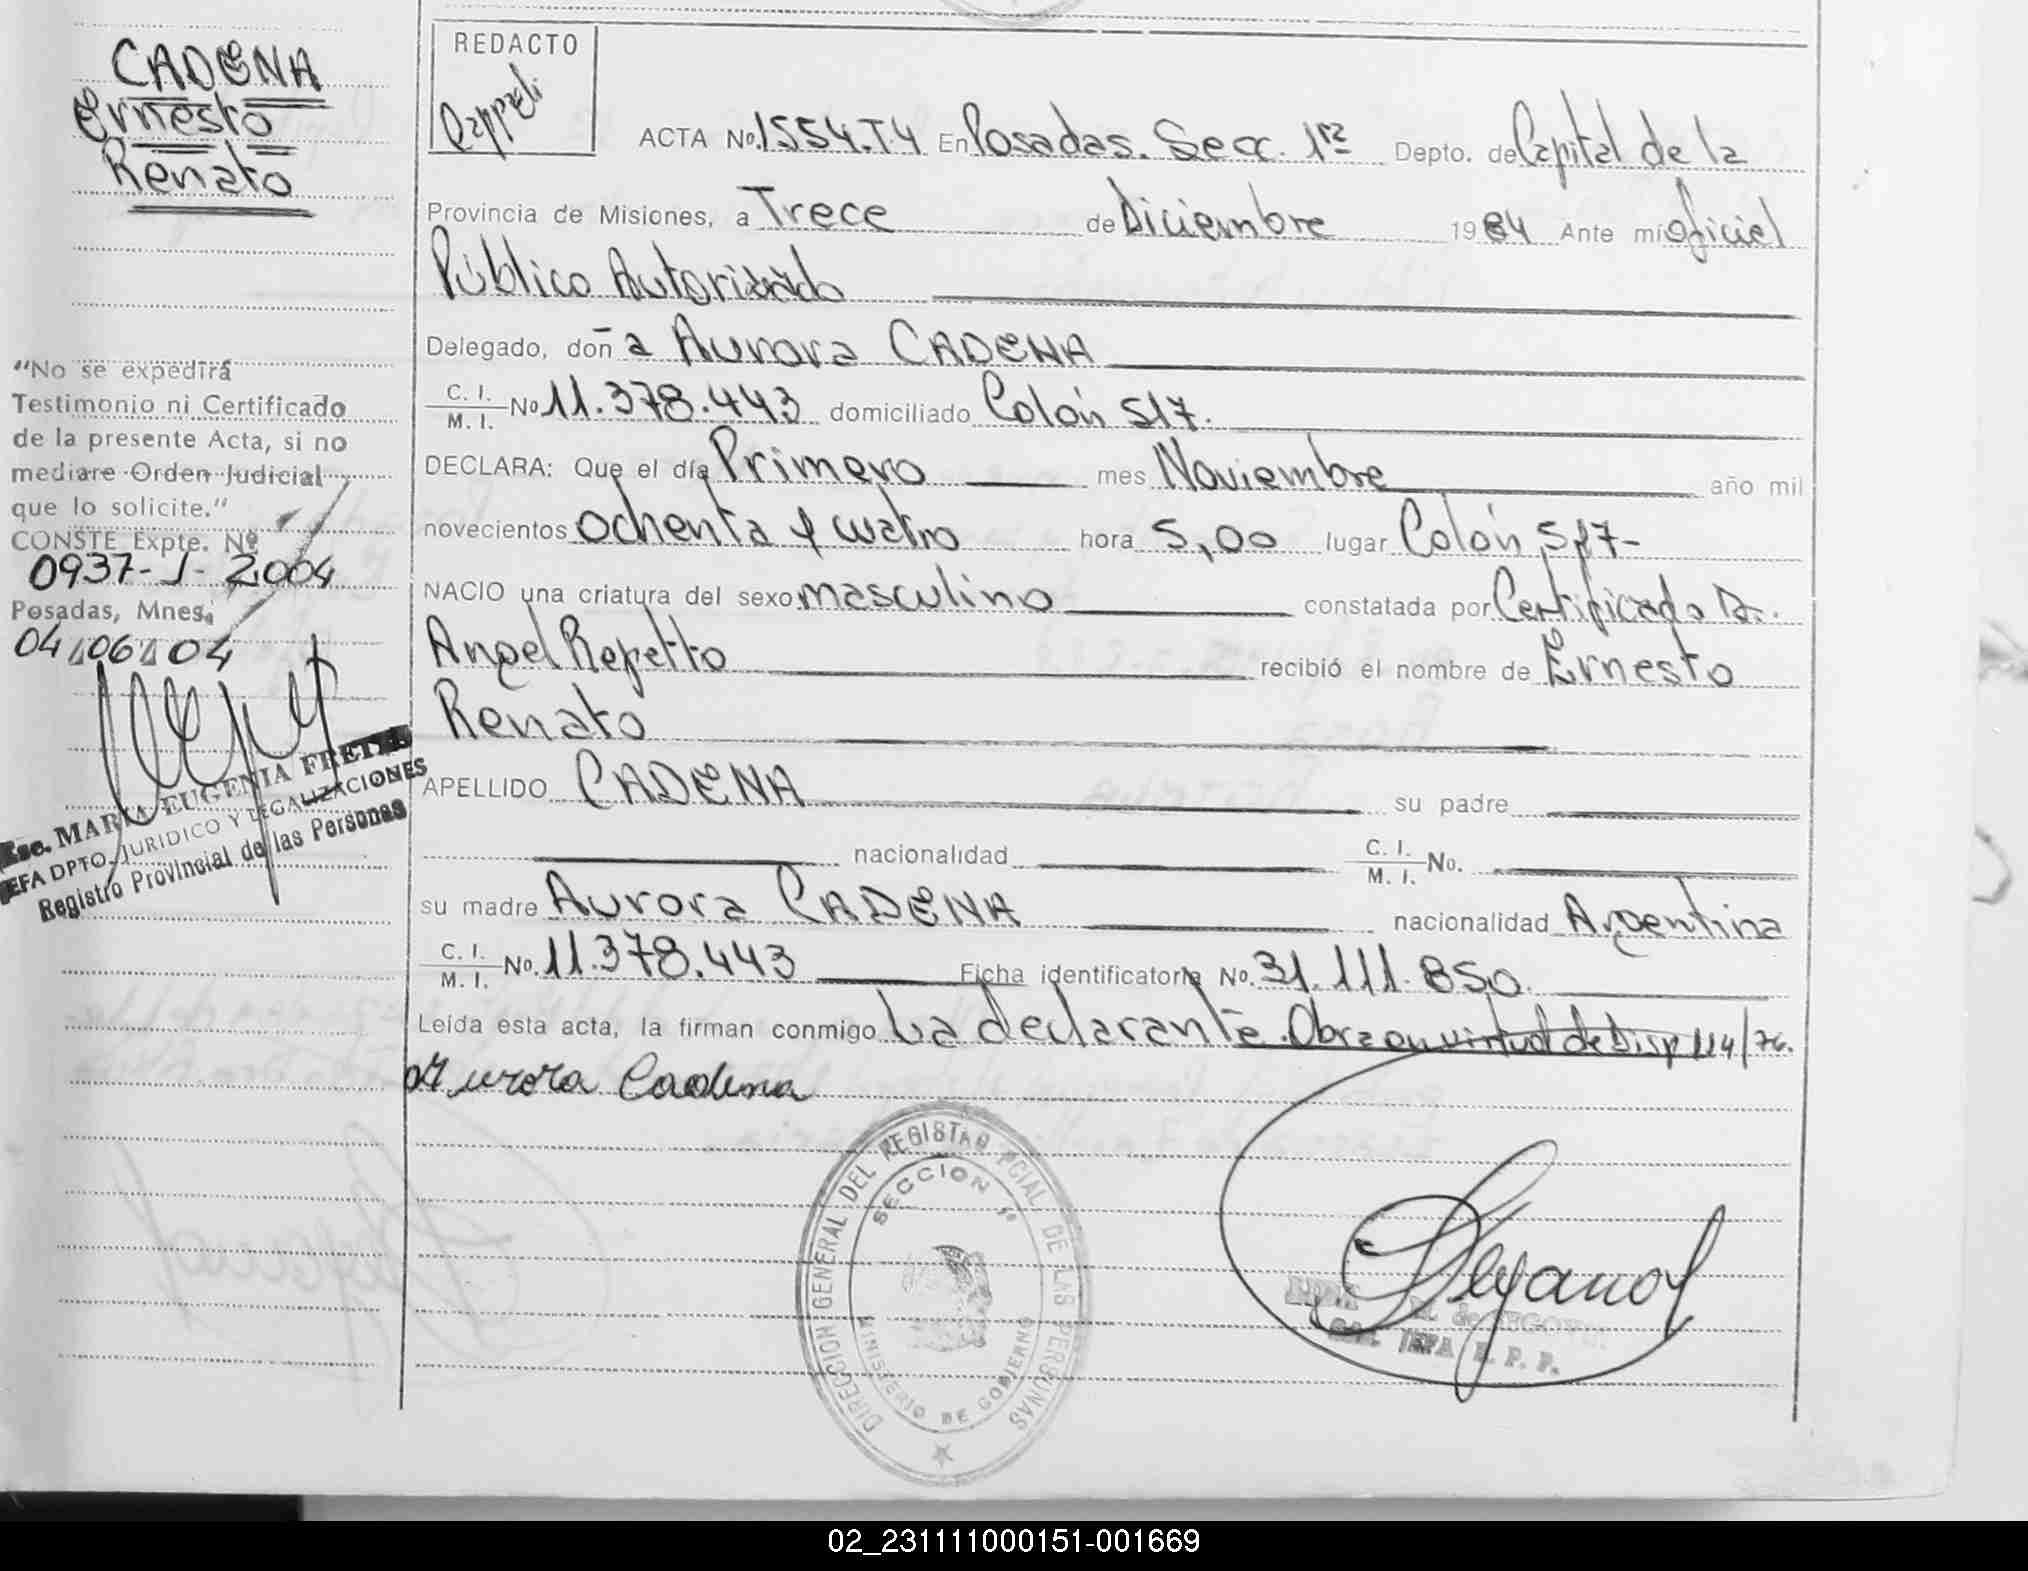 CADENA
Ernesto
Renato
"No se expedirá
Testimonio ni Certificado
de la presente Acta, si no
mediare Orden Judicial
que lo solicite."
CONSTE Expte. Nº
0937-J-2004
Posadas, Mnes,
04/06/04
Esc. MARIA EUGENIA
JEFA DPTO. JURIDICO Y LEGALIZACIONES
Registro Provincial de las Personas
REDACTO
ACTA No. 1554.T4 En Posadas. Secc. 1ra Depto. de Capital de la
Provincia de Misiones, a Trece de Diciembre 1984 Ante mí Oficial
Público Autorizado
Delegado, doña Aurora CADENA
C. I.
M. I. No 11.378.443 domiciliado Colón 517.
DECLARA: Que el día Primero mes Noviembre año mil
novecientos ochenta y cuatro hora 5,00 lugar Colón 517-
NACIO una criatura del sexo masculino constatada por Certificado Dr.
Angel Repetto recibió el nombre de Ernesto
Renato
APELLIDO CADENA su padre
nacionalidad C. I.
M. I. No.
su madre Aurora CADENA nacionalidad Argentina
C. I.
M. I. No. 11.378.443 Ficha identificatoria No. 31.111.850.
Leída esta acta, la firman conmigo La declarante. Obra en virtud de Disp 114/76.
Aurora Cadena
DIRECCION GENERAL DEL REGISTRO PCIAL DE LAS PERSONAS
SECCION 1ª
MINISTERIO DE GOBIERNO
JEFA R. P. P.
02_231111000151-001669